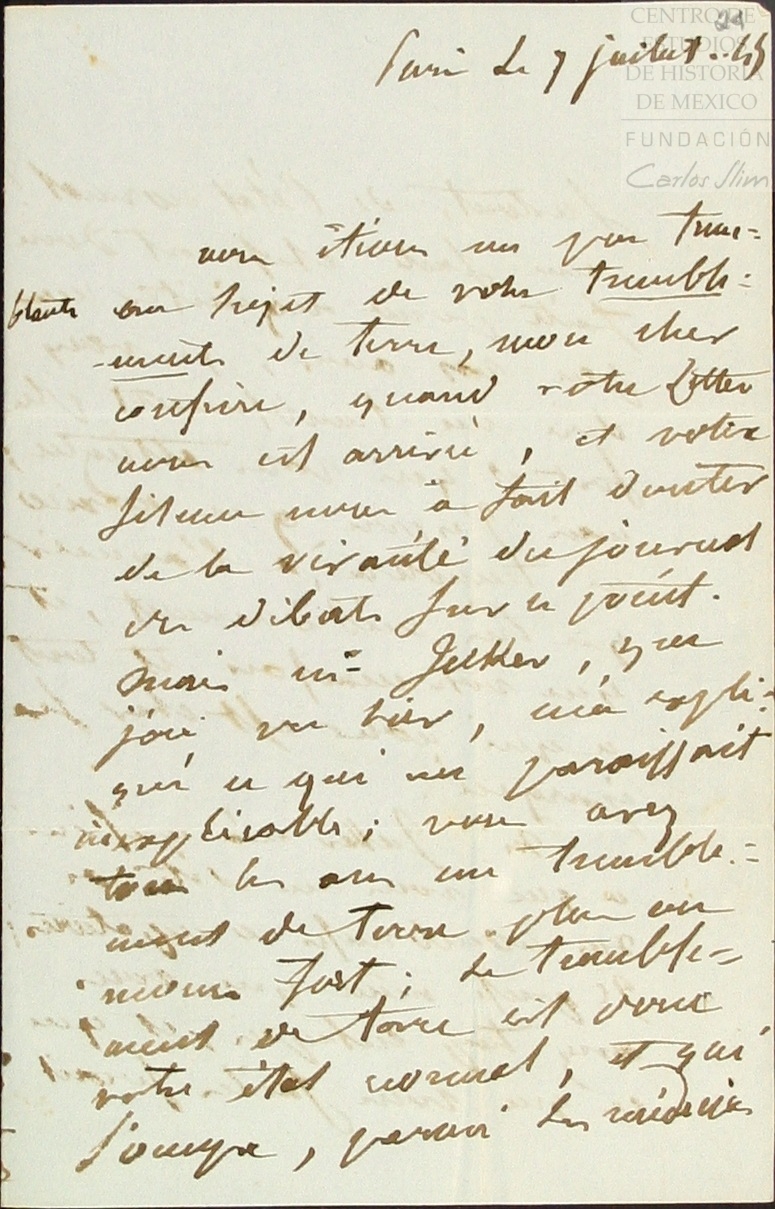 24
CENTRO DE
ESTUDIOS
DE HISTORIA
DE MEXICO
FUNDACIÓN
Carlos Slim
Paris le 7 juillet
nous étions un peu trem=
blants au sujet de votre tremble=
-ments de terre, mon cher
confrère, quand votre lettre
nous est arrivée, et votre
silence nous a fait douter
de la véracité du journal
des débats sur ce point.
mais mr Jecker, que
j'ai vu hier, m'a expli=
qué ce qui me paraissait
inexplicable; vous avez
tous les ans un tremble=
ment de terre plus ou
moins fort; le tremble=
ment de terre est donc
votre état normal, et qui
s'occupe, parmi les médecins